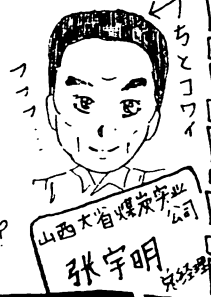 ちとコワイ
フフフ…
山西大省煤炭实业
公司
张宇明
总经理